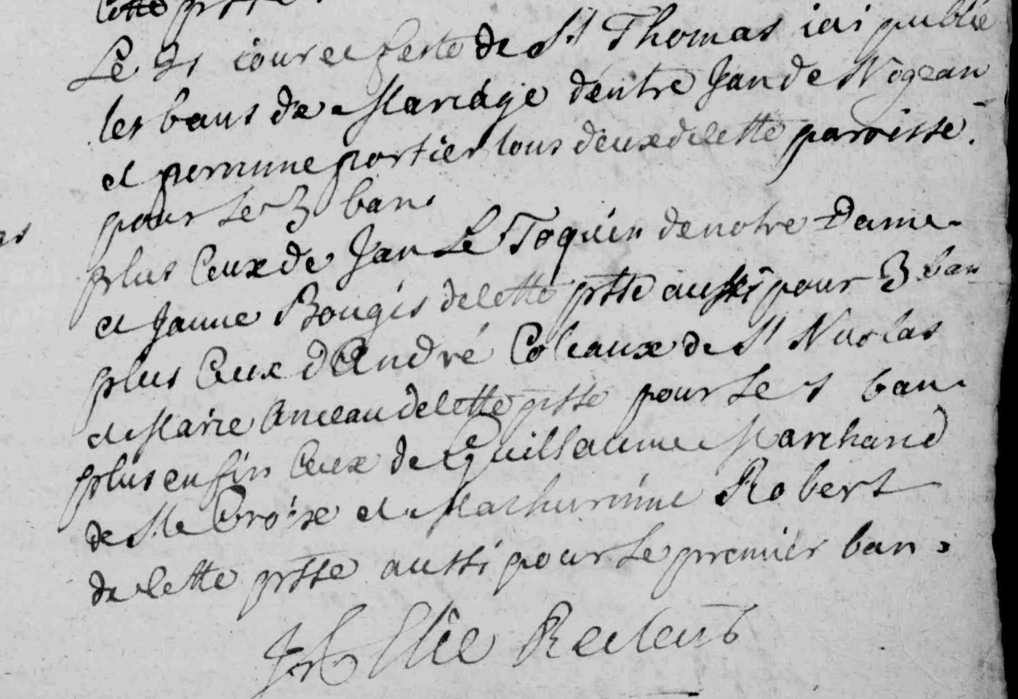 cette psse
Le 21 jour et feste de St Thomas iai publié
les bans de Mariage dentre Jan de Nogean
et perrinne portier tous deux de cette paroisse.
pour le 3 ban.
plus ceux de Jan Le Toquin de notre Dame
et Janne Bougis de cette psse aussi pour 3 ban
plus ceux d'André Coleaux de St Nicolas
et Marie anceau de cette psse pour le 1 ban.
plus enfin ceux de Guillaume Marchand
de Ste Croix et Mathurinne Robert
de cette psse aussi pour le premier ban.
Elie Recteur